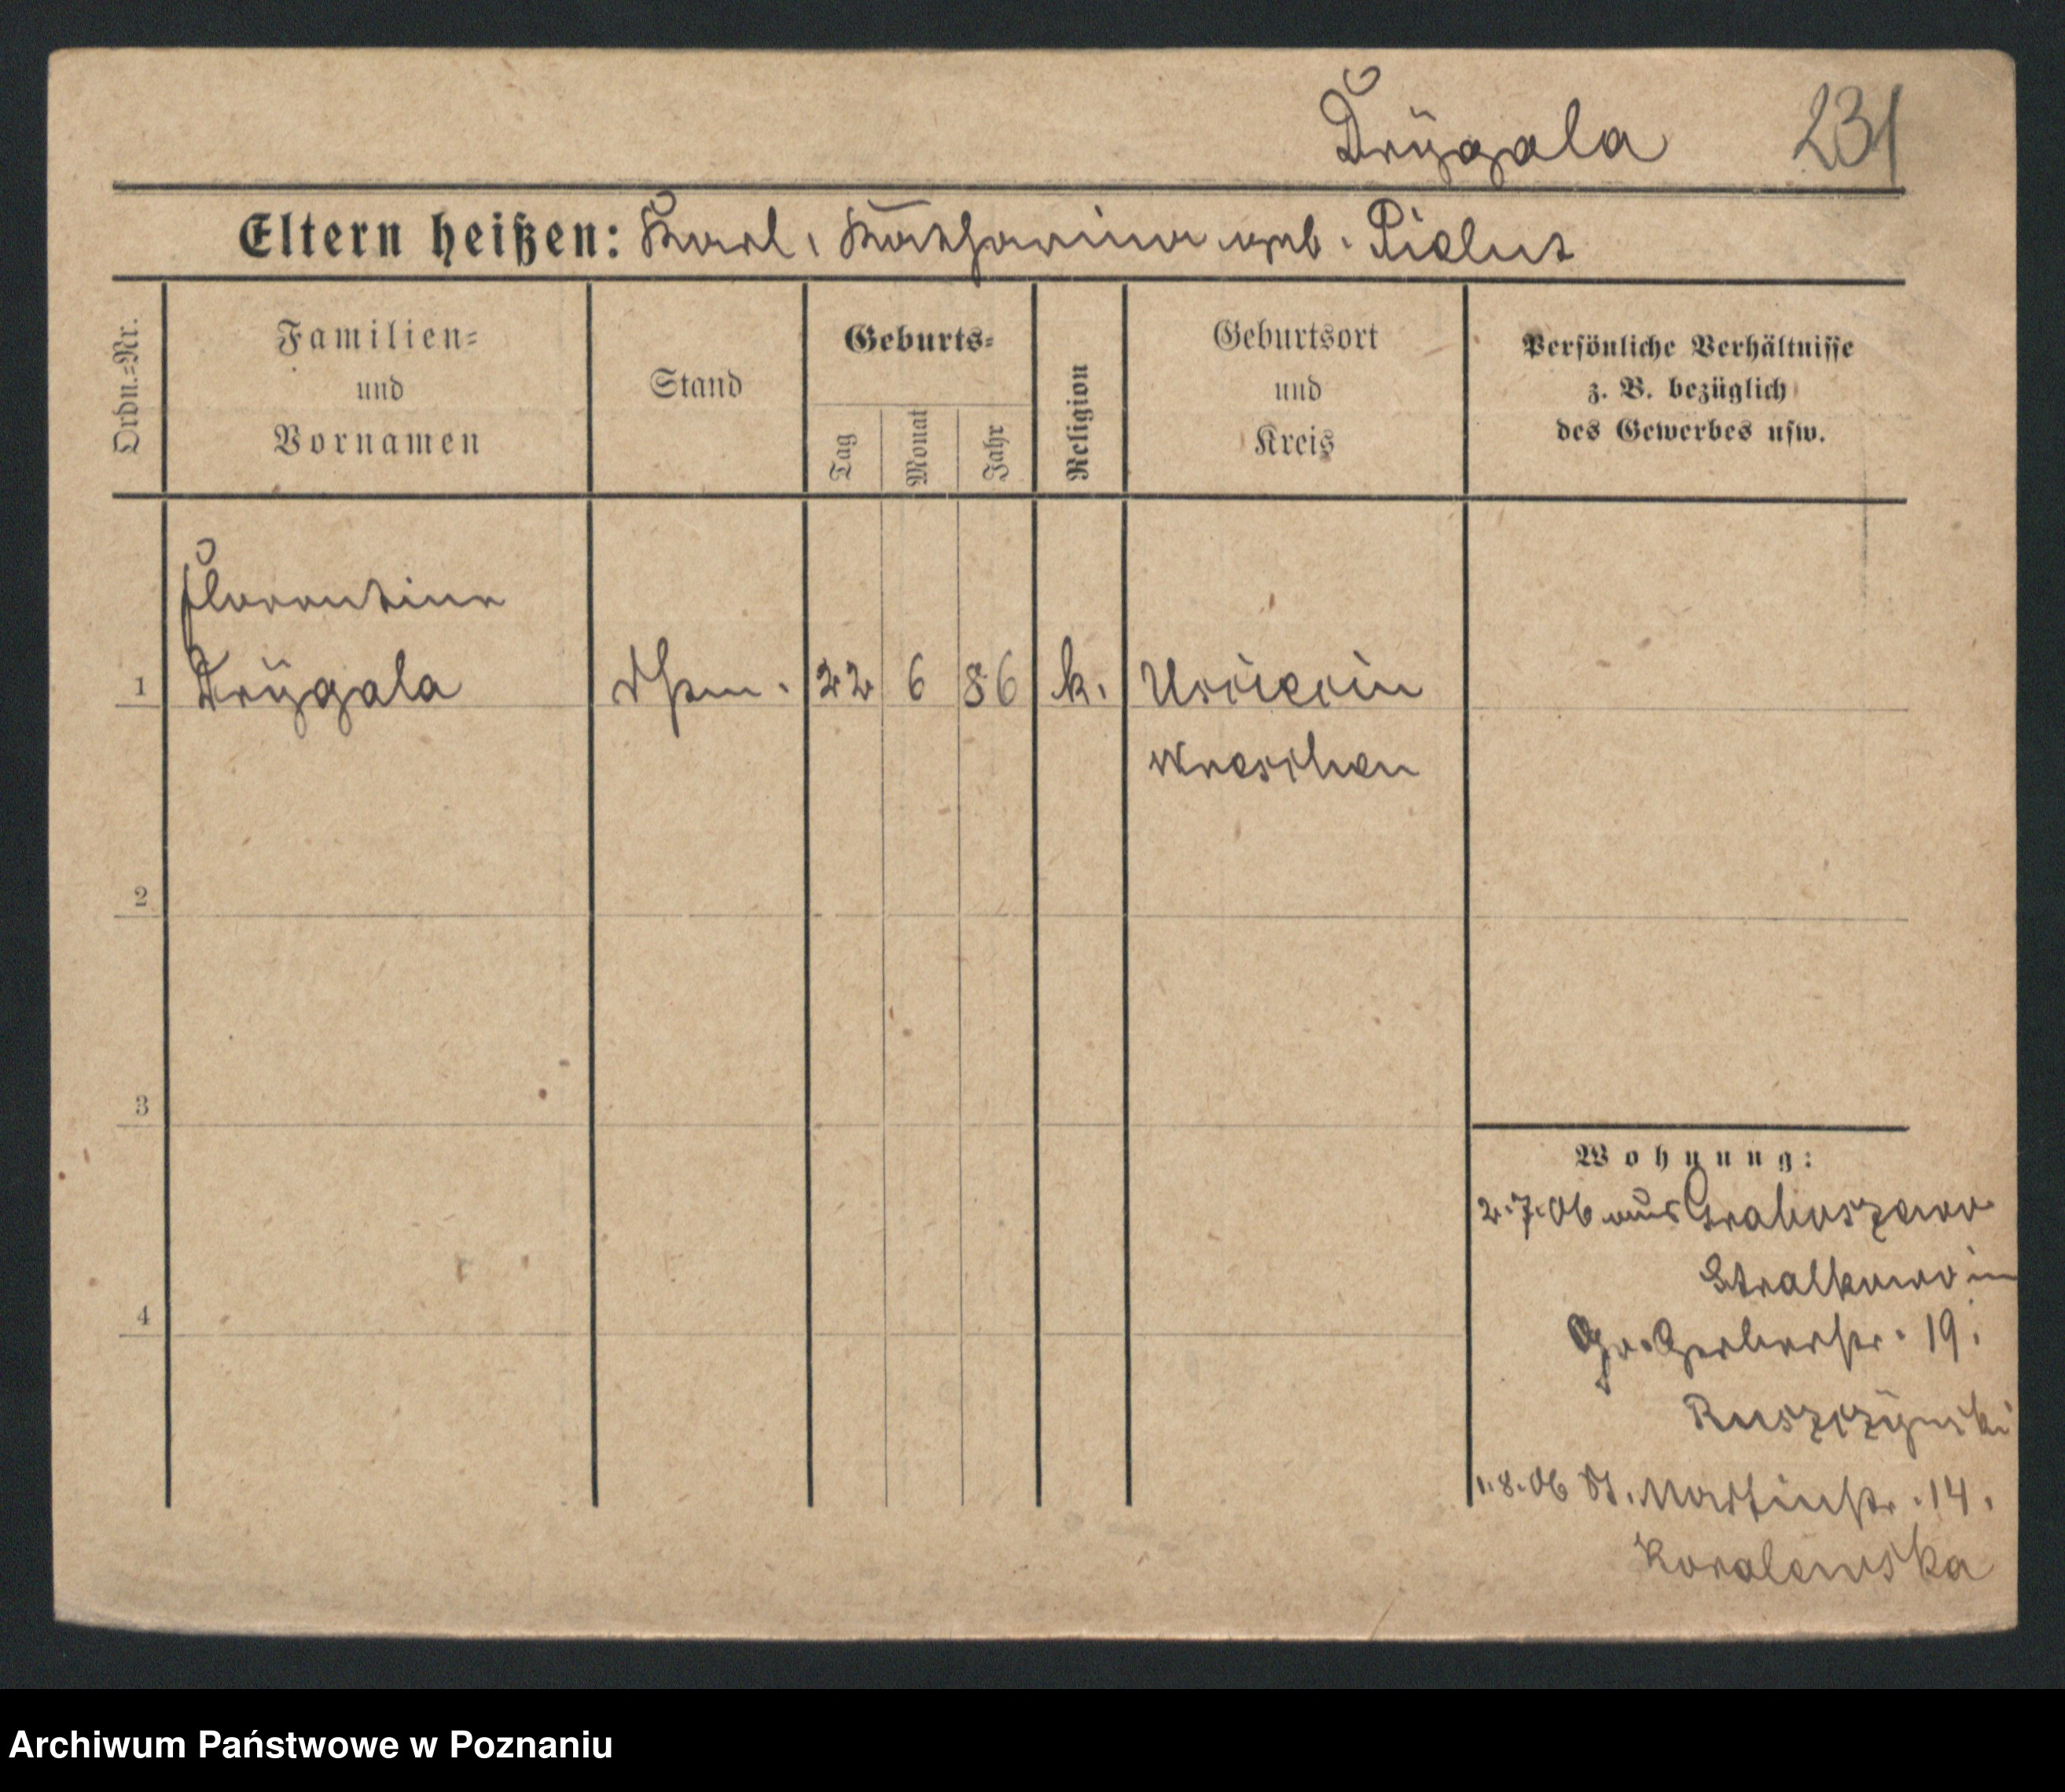 Drÿgala 231
Eltern heißen: Karl, Katharina geb. Pielut
Ordn.=Nr.
Familien=
und
Vornamen
Stand
Geburts=
Tag
Monat
Jahr
Religion
Geburtsort
und
Kreis
Persönliche Verhältnisse
z. B. bezüglich
des Gewerbes usw.
Florentine
1 Drÿgala 22 6 86 k.
Wreschen
2
3
4
Wohnung:
2.7.06 aus Graboszewo
Stralkowo in
Gr. Gerberstr. 19.
Ruszczÿnski
1.8.06 St. Martinstr. 14.
Koralewska
Archiwum Państwowe w Poznaniu